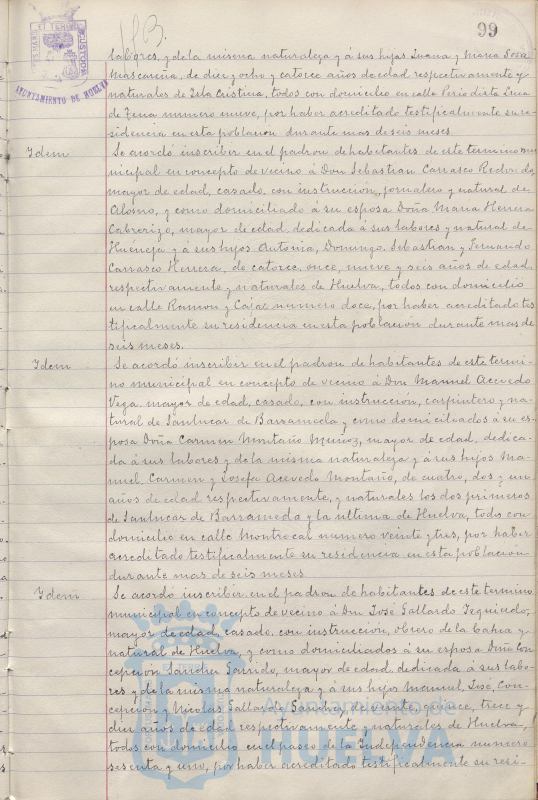 113.
99
AYUNTAMIENTO DE HUELVA
labores, y de la misma naturaleza y á sus hijas Juana y Maria Sosa
Mascareña, de diez y ocho y catorce años de edad respectivamente y
naturales de Isla Cristina, todos con domicilio en calle Periodista Luca
de Tena numero nueve, por haber acreditado testificalmente su re-
sidencia en esta poblacion durante mas de seis meses.
Idem
Se acordó inscribir en el padron de habitantes de este termino mu
nicipal en concepto de vecino á Don Sebastian Carrasco Redondo,
mayor de edad, casado, con instrucción, jornalero y natural de
Alosno, y como domiciliado á su esposa Doña Maria Herrera
Cabrerizo, mayor de edad, dedicada á sus labores y natural de
Huéneja y á sus hijos Antonia, Domingo, Sebastian y Fernando
Carrasco Herrera, de catorce, once, nueve y seis años de edad
respectivamente y naturales de Huelva, todos con domicilio
en calle Ramon y Cajal numero doce, por haber acreditado tes
tificalmente su residencia en esta población durante mas de
seis meses.
Idem
Se acordó inscribir en el padron de habitantes de este termi-
no municipal en concepto de vecino á Don Manuel Acevedo
Vega, mayor de edad, casado, con instrucción, carpintero y na-
tural de Sanlucar de Barrameda y como domiciliados á su es-
posa Doña Carmen Montaño Muñoz, mayor de edad, dedica-
da á sus labores y de la misma naturaleza y á sus hijos Ma-
nuel, Carmen y Josefa Acevedo Montaño, de cuatro, dos y un
años de edad respectivamente, y naturales los dos primeros
de Sanlucar de Barrameda y la ultima de Huelva, todos con
domicilio en calle Montrocal numero veinte y tres, por haber
acreditado testificalmente su residencia en esta poblacion
durante mas de seis meses.
Idem
Se acordó inscribir en el padron de habitantes de este termino
municipal en concepto de vecino á Don José Gallardo Izquierdo,
mayor de edad, casado, con instrucción, obrero de la Bahia y
natural de Huelva, y como domiciliados á su esposa Doña Con
cepción Sandra Garrido, mayor de edad, dedicada á sus labo-
res y de la misma naturaleza y á sus hijos Manuel, José, Con-
cepción y Nicolas Gallardo Sandra, de veinte, quince, trece y
diez años de edad respectivamente y naturales de Huelva,
todos con domicilio en el paseo de la Independencia numero
sesenta y uno, por haber acreditado testificalmente su resi-
Ayuntamiento de
HUELVA